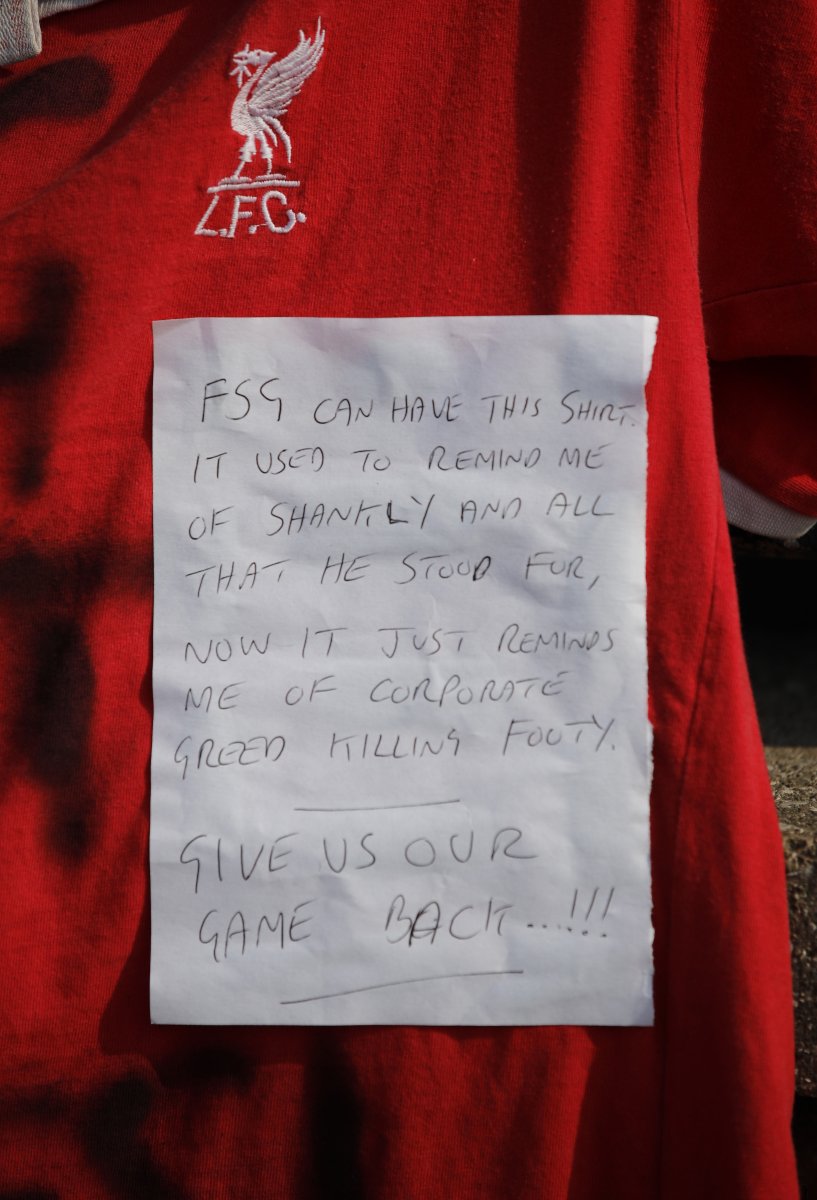 L.F.C.
FSG CAN HAVE THIS SHIRT.
IT USED TO REMIND ME
OF SHANKLY AND ALL
THAT HE STOOD FOR,
NOW IT JUST REMINDS
ME OF CORPORATE
GREED KILLING FOOTY.
GIVE US OUR
GAME BACK......!!!